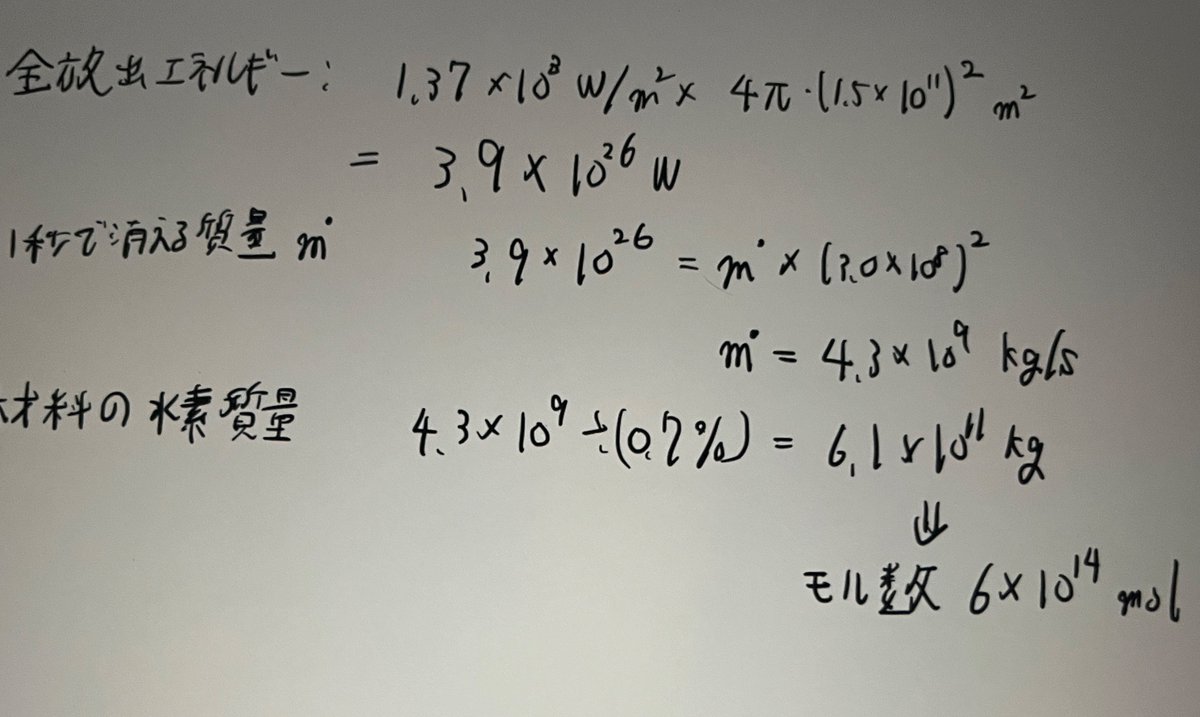 全放出エネルギー: 1.37×10³ W/m² × 4π·(1.5×10¹¹)² m²
= 3.9×10²⁶ W
1秒で消える質量 ṁ 3.9×10²⁶ = ṁ × (3.0×10⁸)²
ṁ = 4.3×10⁹ kg/s
材料の水素質量 4.3×10⁹ ÷(0.7%) = 6.1×10¹¹ kg
⇓
モル数 6×10¹⁴ mol